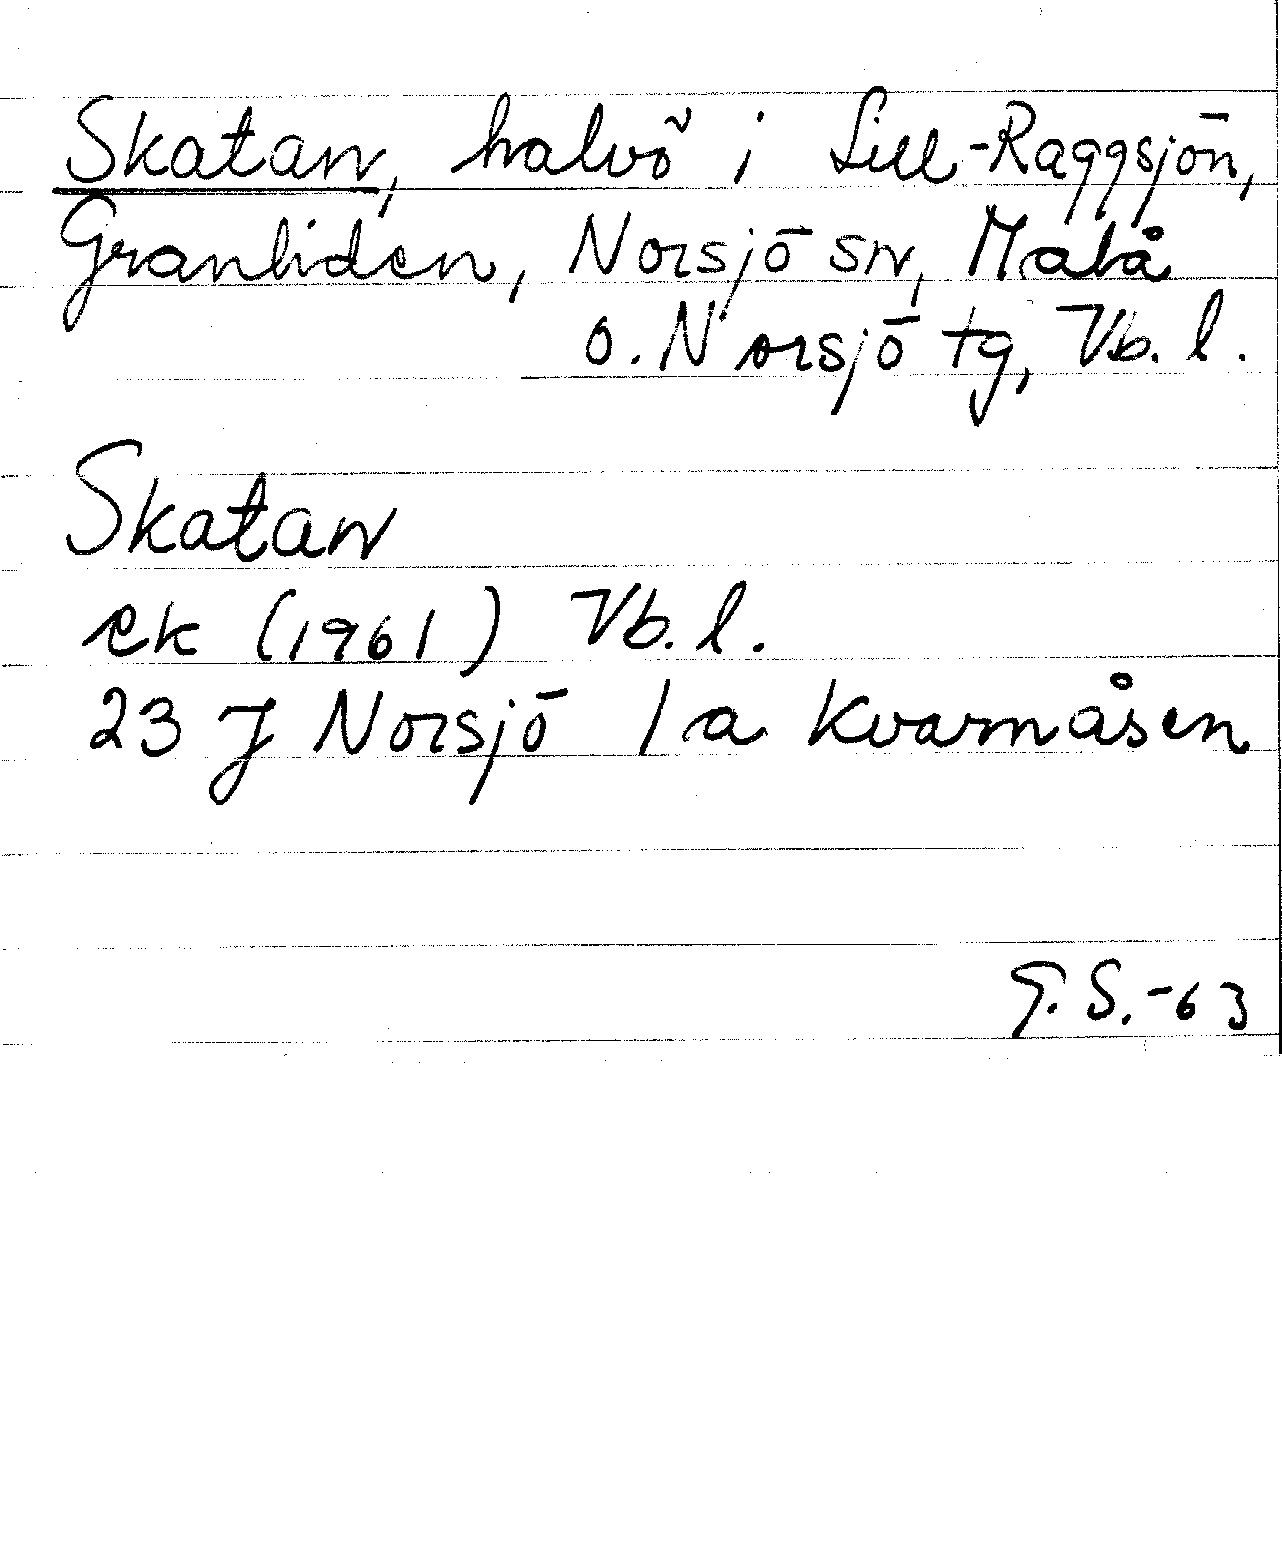 Skatan, halvö i Lill-Raggsjön,
Granliden, Norsjö sn, Malå
o. Norsjö tg, Vb. l.
Skatan
ek (1961) Vb. l.
23 J Norsjö 1 a Kvarnåsen
G. S. -63